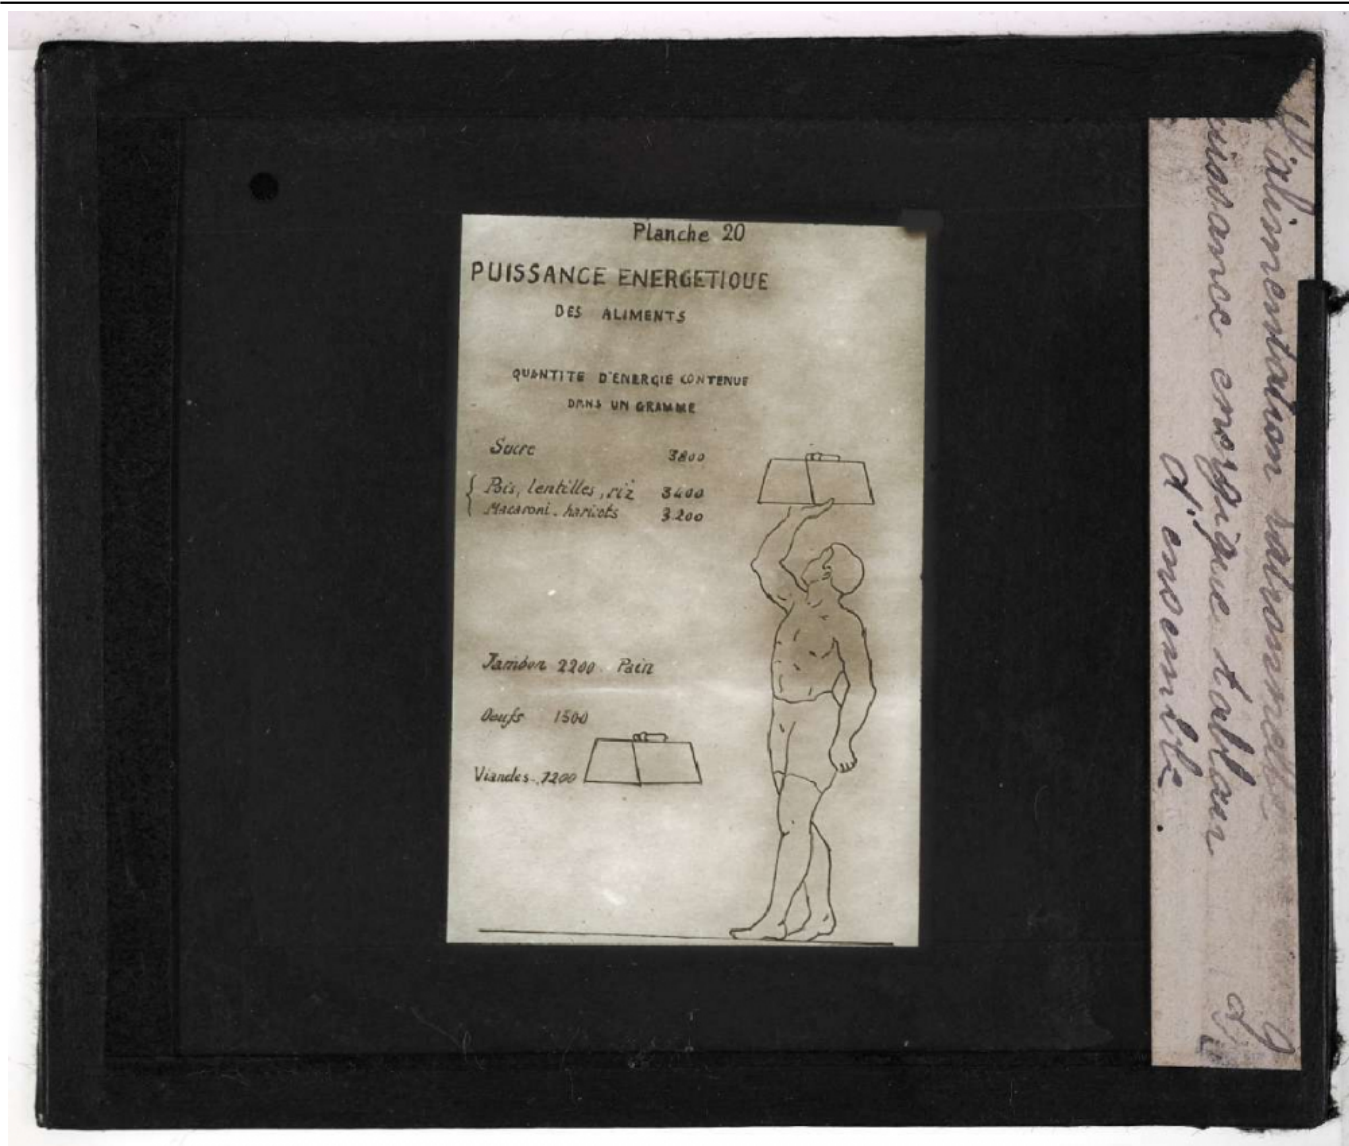 Planche 20
PUISSANCE ENERGETIQUE
DES ALIMENTS
QUANTITE D'ENERGIE CONTENUE
DANS UN GRAMME
Sucre 3800
{ Pois, lentilles, riz 3400
{ Macaroni. haricots 3.200
Jambon 2200. Pain
Oeufs 1500
Viandes. 1200
L'alimentation rationnelle
uissance energique tableau
d'ensemble.